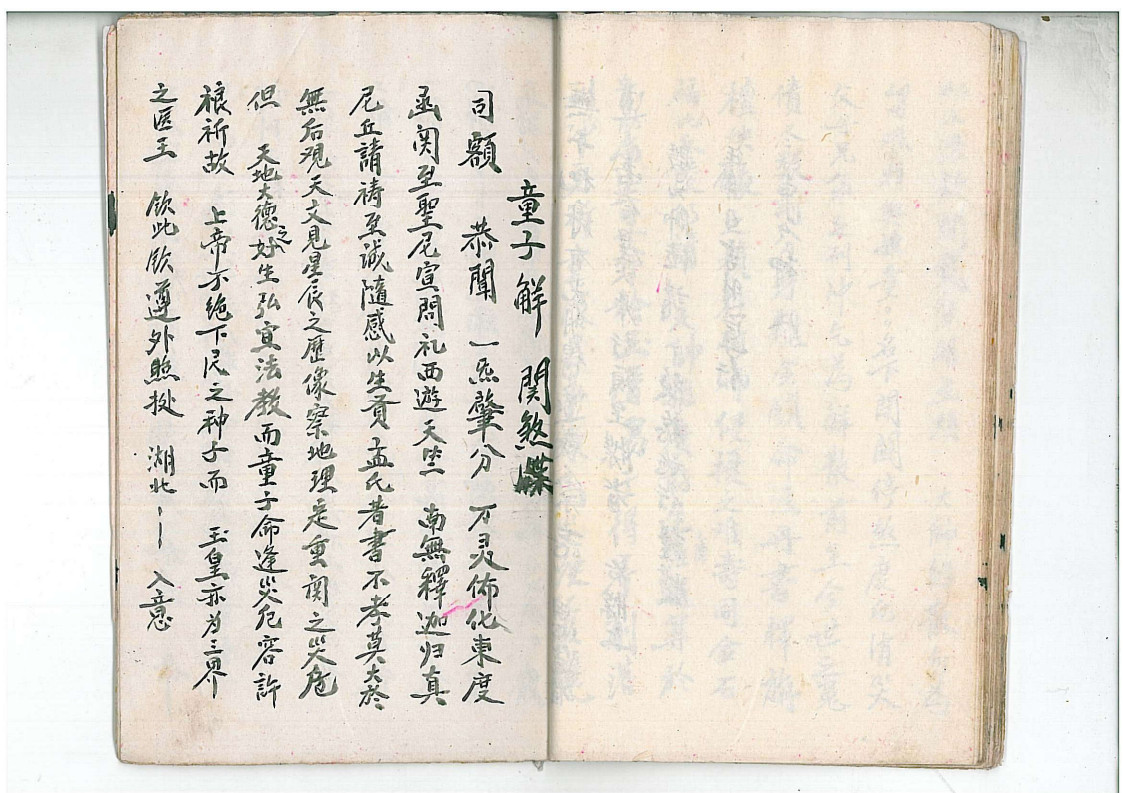 童子解 関煞牒
司額 恭聞一炁肇分万灵佈化東度
函関至聖尼宣問礼西遊天竺 南無釋迦归真
尼丘請祷至诚隨感以生贡孟氏著書不孝莫大於
無后观天文見星辰之歷像察地理定重関之災危
但 天地大德之好生弘宣法教而童子命逢災厄容許
禳祈故 上帝不绝下民之种子而 玉皇亦为三界
之医王 钦此钦遵外照拠 湖北 入意